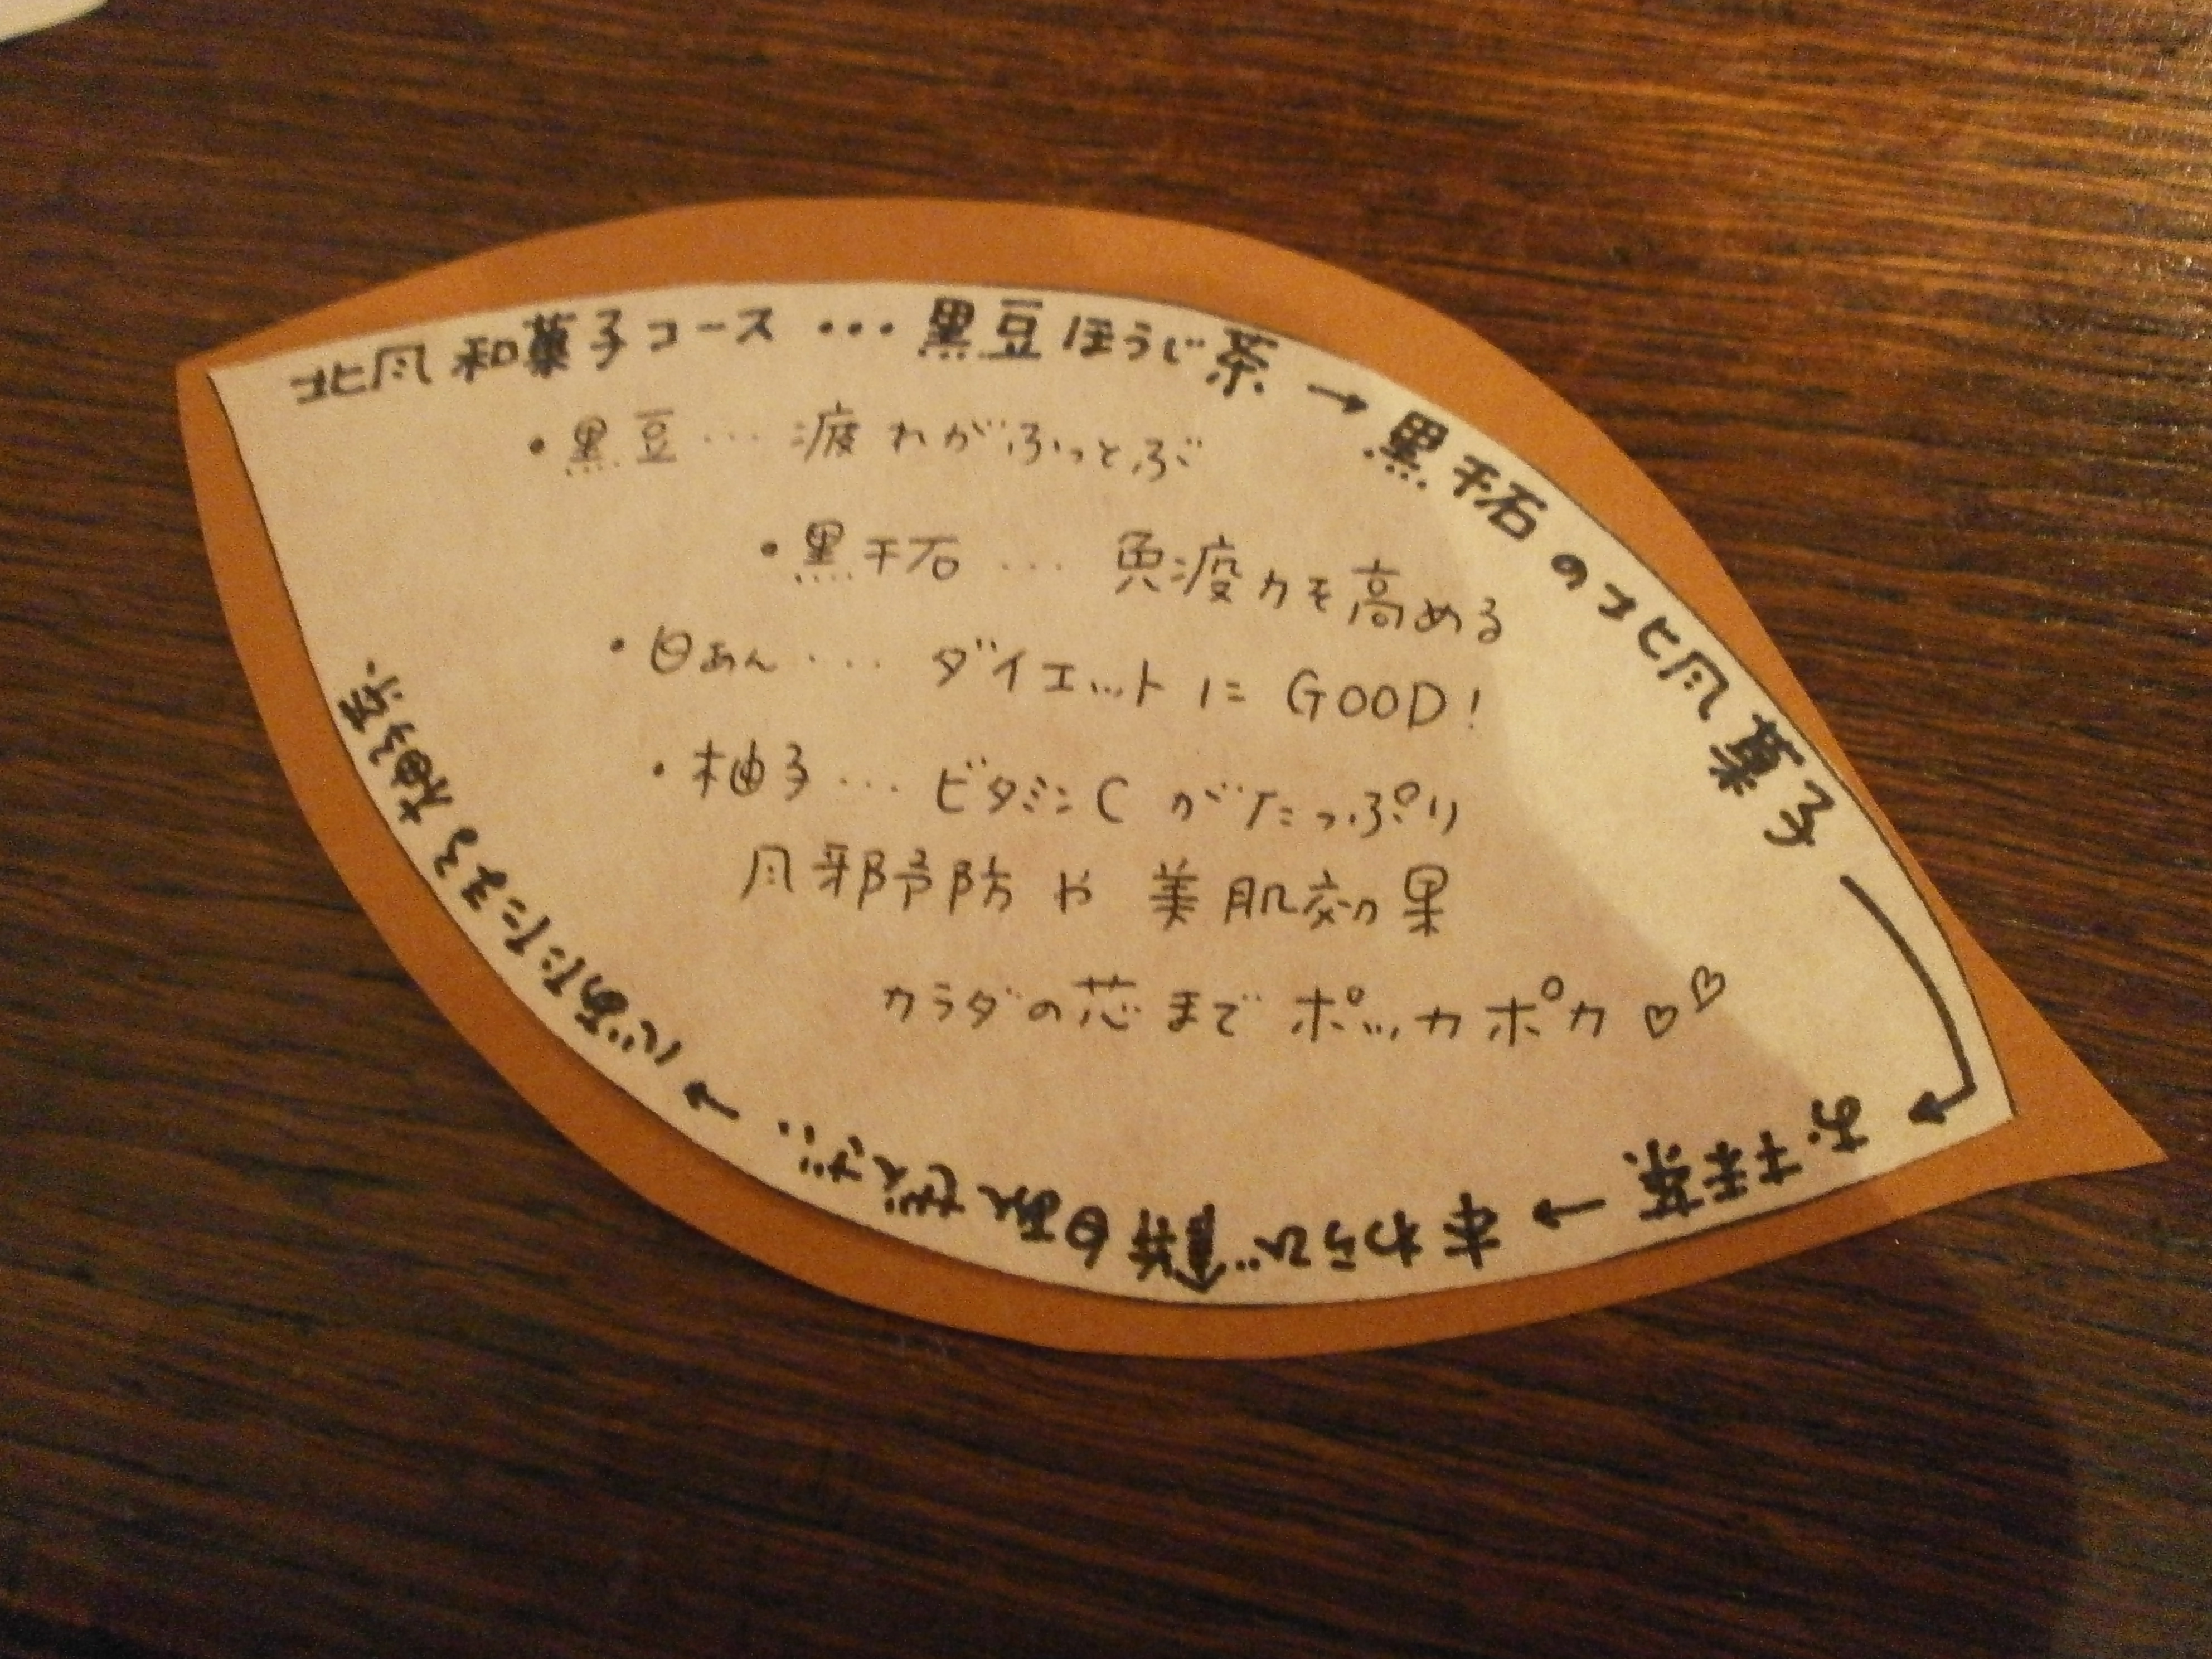 北風和菓子コース…黒豆ほうじ茶→黒千石の北風菓子
→お抹茶→本わらび餅白あんぜんざい→心あたたまる柚子茶
・黒豆…疲れがふっとぶ
・黒千石…免疫力を高める
・白あん…ダイエットにGOOD!
・柚子…ビタミンCがたっぷり
風邪予防や美肌効果
カラダの芯までポッカポカ♡♡